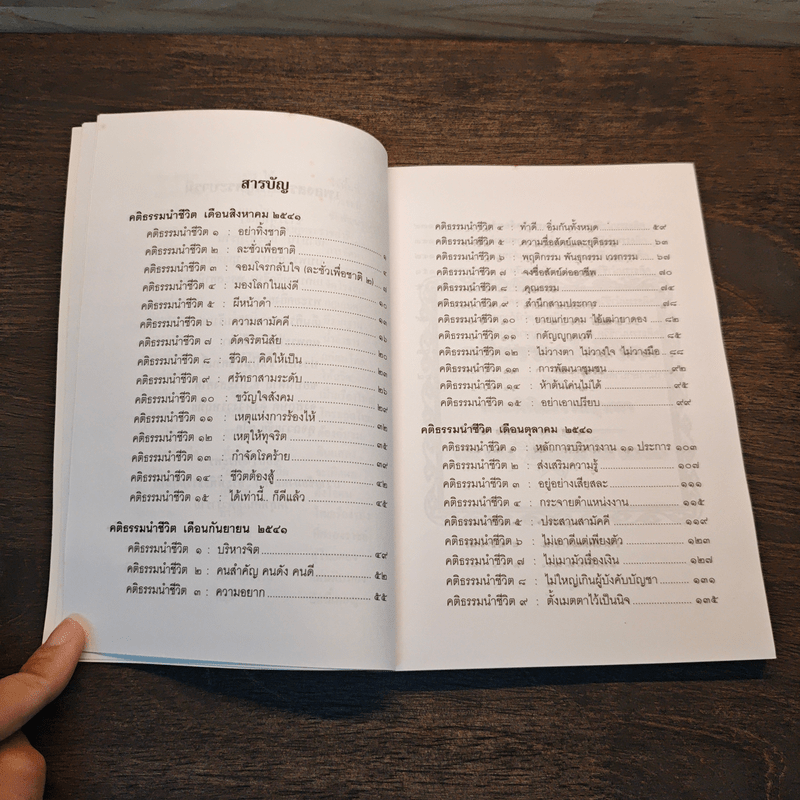 สารบัญ
คติธรรมนำชีวิต เดือนสิงหาคม ๒๕๔๑
คติธรรมนำชีวิต ๑ : อย่าทิ้งชาติ ๑
คติธรรมนำชีวิต ๒ : ละชั่วเพื่อชาติ ๔
คติธรรมนำชีวิต ๓ : จอมโจรกลับใจ (ละชั่วเพื่อชาติ ๒)
คติธรรมนำชีวิต ๔ : มองโลกในแง่ดี ๑๐
คติธรรมนำชีวิต ๕ : ผีหน้าดำ
คติธรรมนำชีวิต ๖ : ความสามัคคี ๑๖
คติธรรมนำชีวิต ๗ : ดัดจริตนิสัย ๒๐
คติธรรมนำชีวิต ๘ : ชีวิต... คิดให้เป็น
คติธรรมนำชีวิต ๙ : ศรัทธาสามระดับ ๒๖
คติธรรมนำชีวิต ๑๐ : ขวัญใจสังคม ๒๙
คติธรรมนำชีวิต ๑๑ : เหตุแห่งการร้องไห้ ๓๒
คติธรรมนำชีวิต ๑๒ : เหตุให้ทุจริต ๓๕
คติธรรมนำชีวิต ๑๓ : กำจัดโรคร้าย ๓๙
คติธรรมนำชีวิต ๑๔ : ชีวิตต้องสู้ ๔๒
คติธรรมนำชีวิต ๑๕ : ได้เท่านี้.. ก็ดีแล้ว ๔๕
คติธรรมนำชีวิต เดือนกันยายน ๒๕๔๑
คติธรรมนำชีวิต ๑ : บริหารจิต ๔๙
คติธรรมนำชีวิต ๒ : คนสำคัญ คนดัง คนดี ๕๒
คติธรรมนำชีวิต ๓ : ความอยาก ๕๕
คติธรรมนำชีวิต ๔ : ทำดี... อิ่มกันทั้งหมด ๕๙
คติธรรมนำชีวิต ๕ : ความซื่อสัตย์และยุติธรรม ๖๓
คติธรรมนำชีวิต ๖ : พฤติกรรม พันธุกรรม เวรกรรม ๖๗
คติธรรมนำชีวิต ๗ : จงซื่อสัตย์ต่ออาชีพ ๗๐
คติธรรมนำชีวิต ๘ : คุณธรรม ๗๔
คติธรรมนำชีวิต ๙ : สำนึกสามประการ ๗๘
คติธรรมนำชีวิต ๑๐ : ยายแก่ยาดม ไอ้เฒ่ายาดอง ๘๒
คติธรรมนำชีวิต ๑๑ : กตัญญูกตเวที ๘๕
คติธรรมนำชีวิต ๑๒ : ไม่วางตา ไม่วางใจ ไม่วางมือ ๘๘
คติธรรมนำชีวิต ๑๓ : การพัฒนาชุมชน ๙๒
คติธรรมนำชีวิต ๑๔ : ห้าต้นโค่นไม่ได้ ๙๕
คติธรรมนำชีวิต ๑๕ : อย่าเอาเปรียบ ๙๙
คติธรรมนำชีวิต เดือนตุลาคม ๒๕๔๑
คติธรรมนำชีวิต ๑ : หลักการบริหารงาน ๑๑ ประการ ๑๐๓
คติธรรมนำชีวิต ๒ : ส่งเสริมความรู้ ๑๐๗
คติธรรมนำชีวิต ๓ : อยู่อย่างเสียสละ ๑๑๑
คติธรรมนำชีวิต ๔ : กระจายตำแหน่งงาน ๑๑๕
คติธรรมนำชีวิต ๕ : ประสานสามัคคี ๑๑๙
คติธรรมนำชีวิต ๖ : ไม่เอาดีแต่เพียงตัว ๑๒๓
คติธรรมนำชีวิต ๗ : ไม่เมามัวเรื่องเงิน ๑๒๗
คติธรรมนำชีวิต ๘ : ไม่ใหญ่เกินผู้บังคับบัญชา ๑๓๑
คติธรรมนำชีวิต ๙ : ตั้งเมตตาไว้เป็นนิจ ๑๓๕